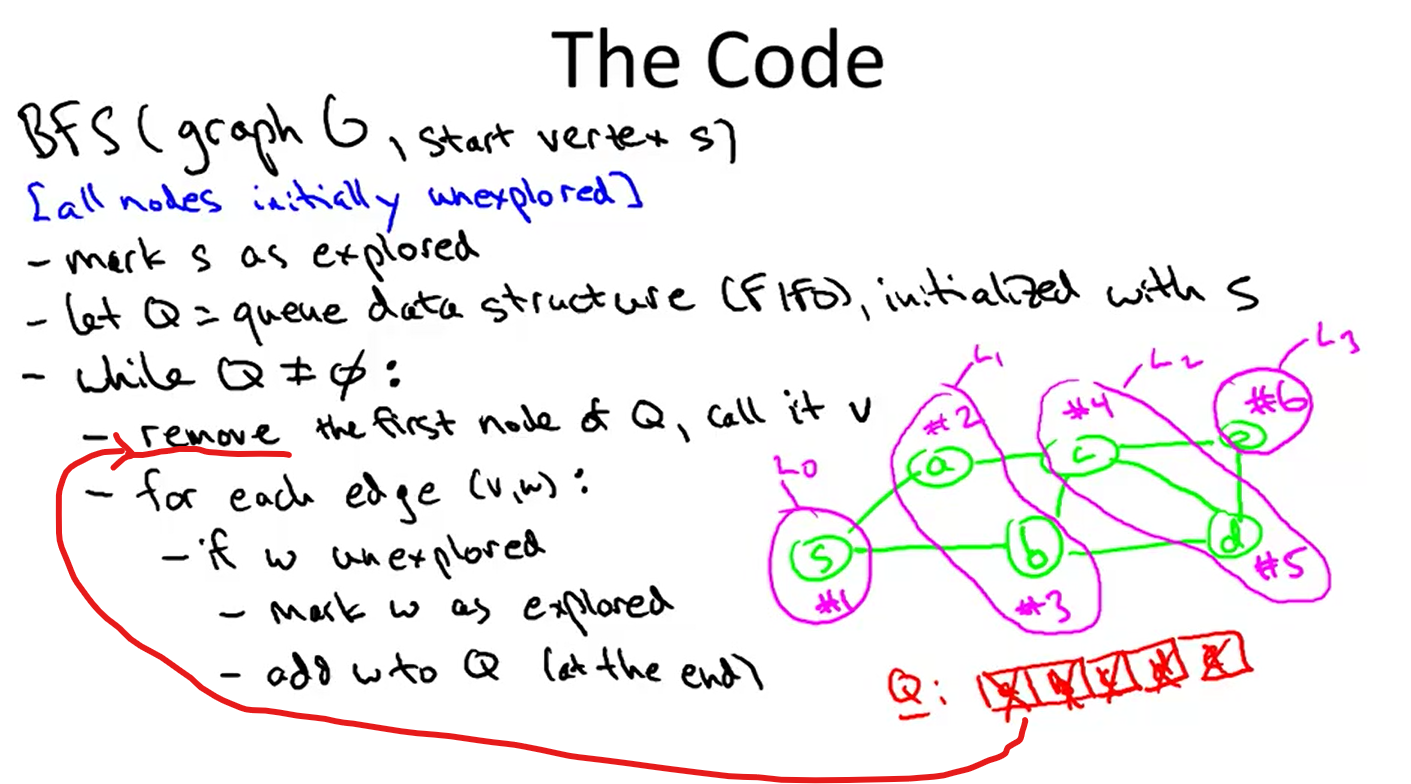 The Code
BFS(graph G, start vertex s)
[all nodes initially unexplored]
- mark s as explored
- let Q = queue data structure (FIFO), initialized with s
- while Q ≠ ∅:
- remove the first node of Q, call it v
- for each edge (v,w):
- if w unexplored
- mark w as explored
- add w to Q (at the end)
L0
L1
L2
L3
s
#1
a
#2
b
#3
c
#4
d
#5
e
#6
Q: